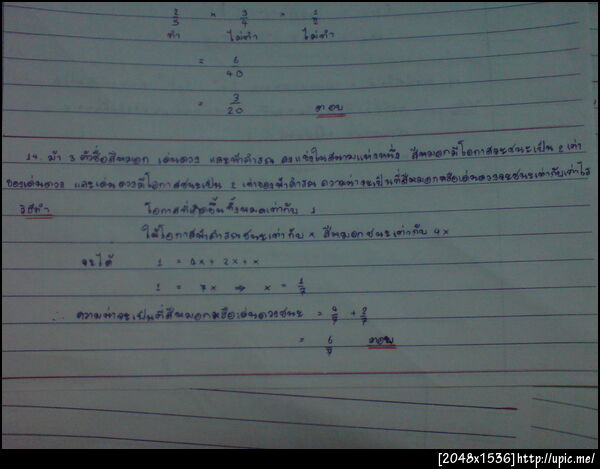 2/5 × 3/4 × 1/2
ทำ ไม่ทำ ไม่ทำ
= 6/40
= 3/20 ตอบ
14. ม้า 3 ตัวชื่อสีหมอก เด่นดวง และฟ้าคำรณ ลงแข่งในสนามแห่งหนึ่ง สีหมอกมีโอกาสจะชนะเป็น 2 เท่า
ของเด่นดวง และเด่นดวงมีโอกาสชนะเป็น 2 เท่าของฟ้าคำรณ ความน่าจะเป็นที่สีหมอกหรือเด่นดวงจะชนะเท่ากับเท่าไร
วิธีทำ โอกาสที่เกิดขึ้นทั้งหมดเท่ากับ 1
ให้โอกาสฟ้าคำรณชนะเท่ากับ x สีหมอกชนะเท่ากับ 4x
จะได้ 1 = 4x + 2x + x
1 = 7x → x = 1/7
∴ ความน่าจะเป็นที่สีหมอกหรือเด่นดวงชนะ = 4/7 + 2/7
= 6/7 ตอบ
[2048x1536]http://upic.me/